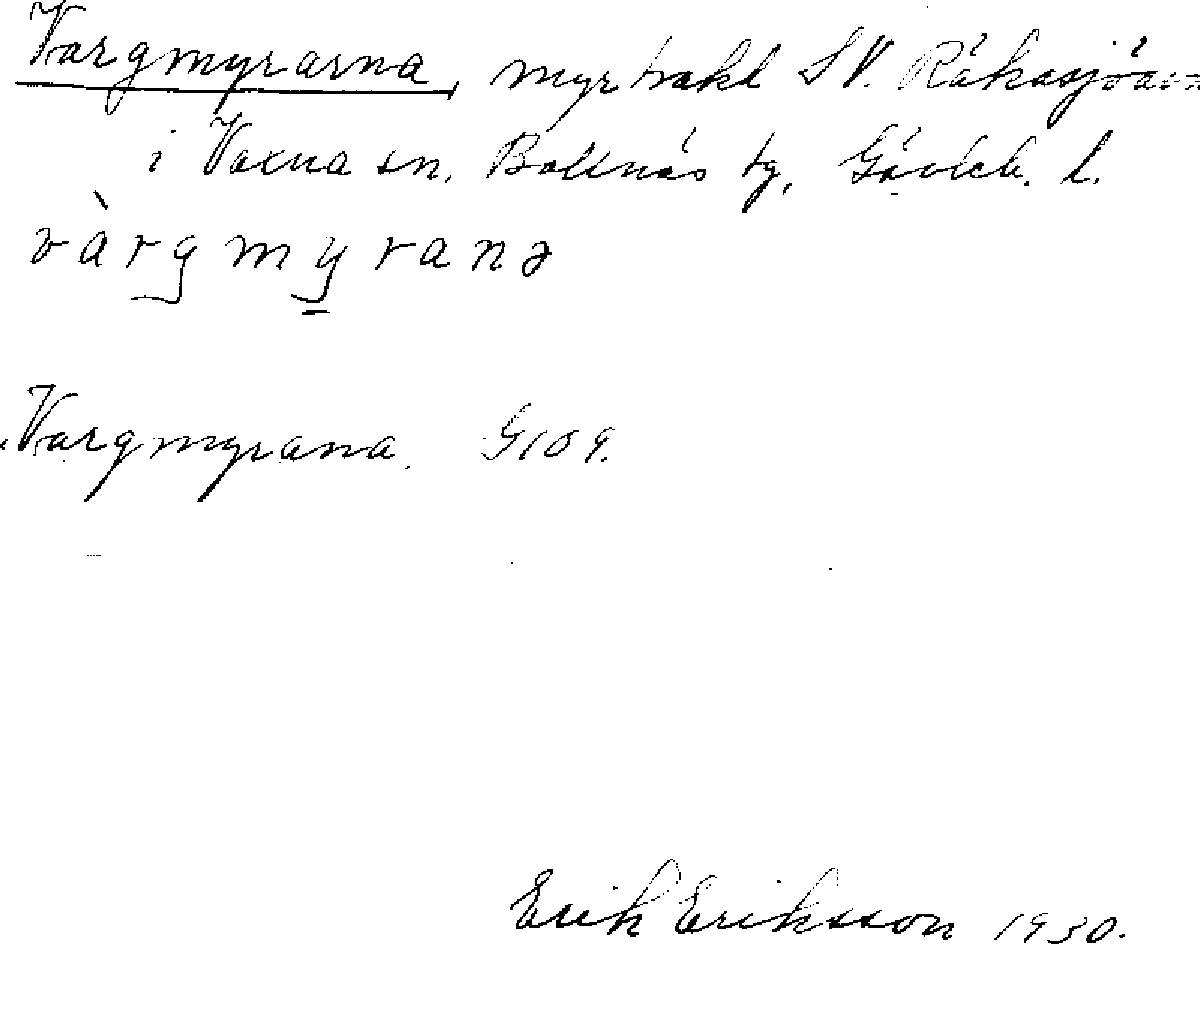 Vargmyrarna, myrtrakt SV. Råkasjöarna
i Voxna sn. Bollnäs tg, Gävleb. l.
vàrgmyranə
Vargmyrana. G109.
Erik Eriksson 1930.